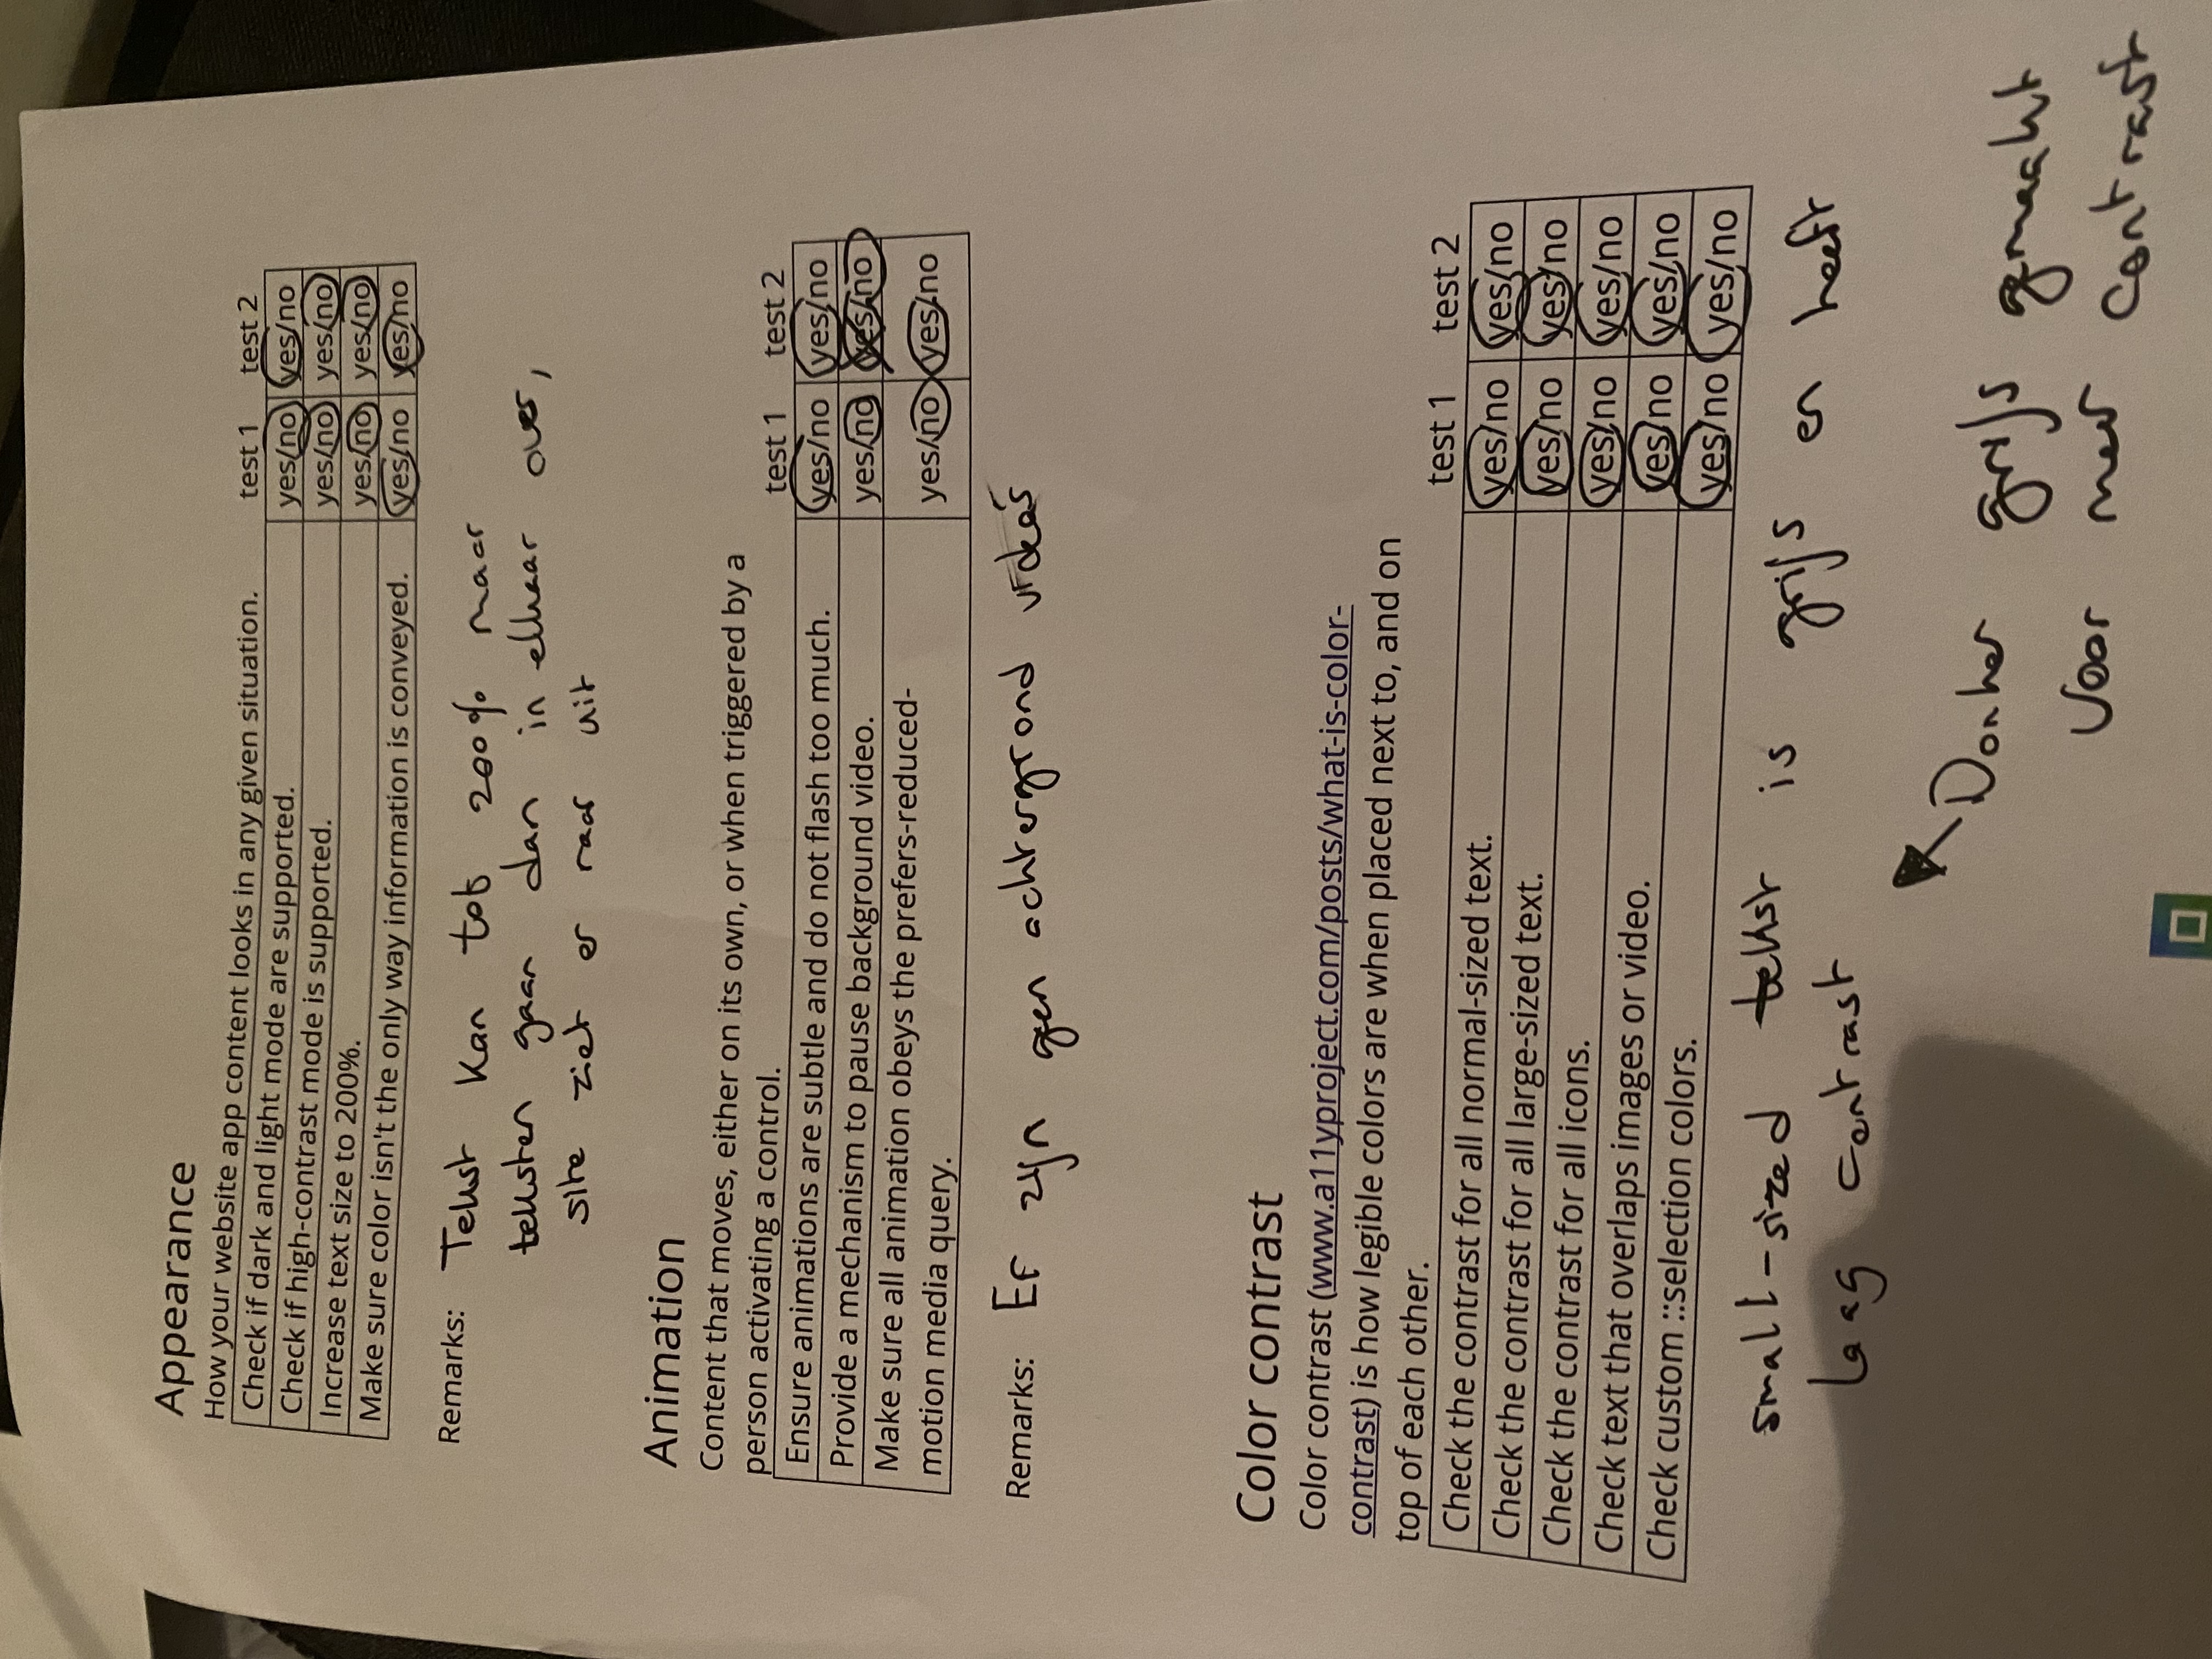 Appearance
How your website app content looks in any given situation. test 1 test 2
Check if dark and light mode are supported. yes/no yes/no
Check if high-contrast mode is supported. yes/no yes/no
Increase text size to 200%. yes/no yes/no
Make sure color isn't the only way information is conveyed. yes/no yes/no
Remarks: Tekst kan tot 200% maar
teksten gaan dan in elkaar over,
site ziet er raar uit
Animation
Content that moves, either on its own, or when triggered by a
person activating a control. test 1 test 2
Ensure animations are subtle and do not flash too much. yes/no yes/no
Provide a mechanism to pause background video. yes/no yes/no
Make sure all animation obeys the prefers-reduced-
motion media query. yes/no yes/no
Remarks: Er zijn geen achtergrond video's
Color contrast
Color contrast (www.a11yproject.com/posts/what-is-color-
contrast) is how legible colors are when placed next to, and on
top of each other. test 1 test 2
Check the contrast for all normal-sized text. yes/no yes/no
Check the contrast for all large-sized text. yes/no yes/no
Check the contrast for all icons. yes/no yes/no
Check text that overlaps images or video. yes/no yes/no
Check custom ::selection colors. yes/no yes/no
small-sized tekst is grijs en heeft
laag contrast
Donker grijs gemaakt
voor meer contrast